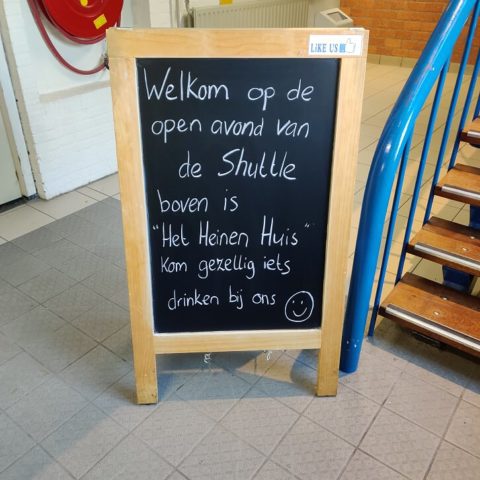 LIKE US
Welkom op de
open avond van
de Shuttle
boven is
"Het Heinen Huis"
Kom gezellig iets
drinken bij ons